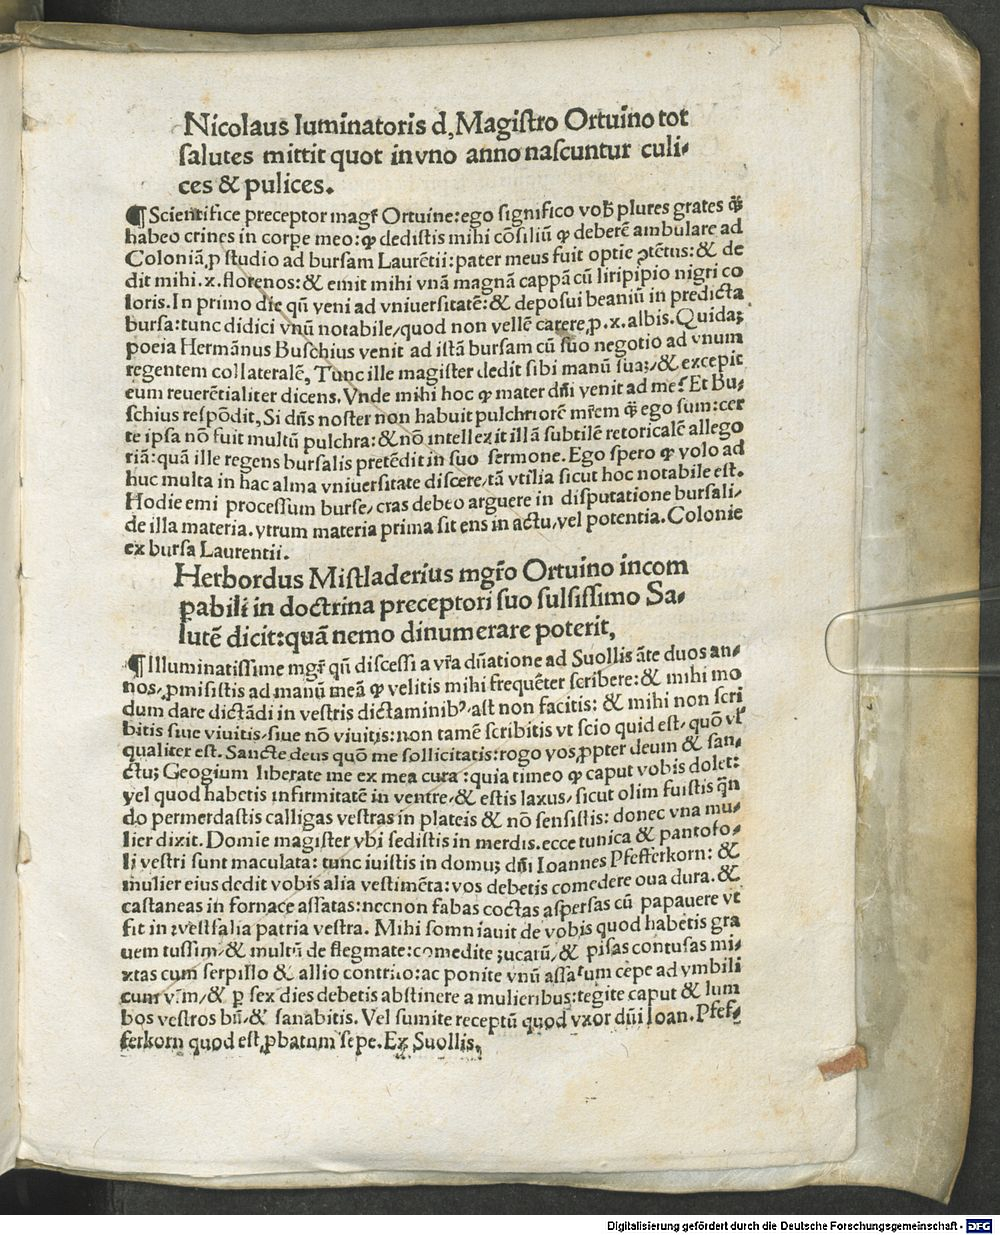 Nicolaus luminatoris d, Magiſtro Ortuino tot
ſalutes mittit quot in vno anno naſcuntur culi⸗
ces & pulices.
¶ Scientifice preceptor magr̃ Ortuine: ego ſignifico vob̃ plures grates q̃ꝫ
habeo crines in corpe meo: ꝙ dediſtis mihi cõſiliũ ꝙ deberẽ ambulare ad
Coloniã, ꝓ ſtudio ad burſam Laurẽtii: pater meus fuit optie ↄtẽtus: & de
dit mihi .x. florenos: & emit mihi vnã magnã cappã cũ liripipio nigri co
loris. In primo die qñ veni ad vniuerſitatẽ: & depoſui beaniũ in predicta
burſa: tunc didici vnũ notabile, quod non vellẽ carere, ꝓ .x. albis. Quidaꝫ
poeta Hermãnus Buſchius venit ad iſtã burſam cũ ſuo negotio ad vnum
regentem collateralẽ, Tunc ille magiſter dedit ſibi manũ ſuaꝫ, & excepit
eum reuerẽtialiter dicens. Vnde mihi hoc ꝙ mater dñi venit ad me? Et Bu⸗
ſchius reſpõdit, Si dñs noſter non habuit pulchriorẽ mr̃em q̃ꝫ ego ſum: cer
te ipſa nõ fuit multũ pulchra: & nõ intellexit illã ſubtilẽ retoricalẽ allego
riã: quã ille regens burſalis pretẽdit in ſuo ſermone. Ego ſpero ꝙ volo ad
huc multa in hac alma vniuerſitate diſcere, tã vtilia ſicut hoc notabile eſt.
Hodie emi proceſſum burſe, cras debeo arguere in diſputatione burſali⸗
de illa materia. vtrum materia prima ſit ens in actu, vel potentia. Colonie
ex burſa Laurentii.
Herbordus Miſtladerius mgr̃o Ortuino incom
pabili in doctrina preceptori ſuo fulſiſſimo Sa⸗
lutẽ dicit: quã nemo dinumerare poterit,
¶ Illuminatiſſime mgr̃ qñ diſceſſi a vr̃a dñatione ad Suollis ãte duos an⸗
nos, ꝓmiſiſtis ad manũ meã ꝙ velitis mihi frequẽter ſcribere: & mihi mo
dum dare dictãdi in veſtris dictaminibꝰ, aſt non facitis: & mihi non ſcri
bitis ſiue viuitis, ſiue nõ viuitis: non tamẽ ſcribitis vt ſcio quid eſt, quõ vl̃
qualiter eſt. Sancte deus quõ me ſollicitatis: rogo vos ꝓpter deum & ſan⸗
ctuꝫ Geogium liberate me ex mea cura: quia timeo ꝙ caput vobis dolet:
vel quod habetis infirmitatẽ in ventre, & eſtis laxus, ſicut olim fuiſtis qñ
do permerdaſtis calligas veſtras in plateis & nõ ſenſiſtis: donec vna mu⸗
lier dixit. Domie magiſter vbi ſediſtis in merdis. ecce tunica & pantofo⸗
li veſtri ſunt maculata: tunc iuiſtis in domuꝫ dñi Ioannes Pfefferkorn: &
mulier eius dedit vobis alia veſtimẽta: vos debetis comedere oua dura. &
caſtaneas in fornace aſſatas: necnon fabas coctas aſperſas cũ papauere vt
fit in veſtfalia patria veſtra. Mihi ſomniauit de vobis quod habetis gra
uem tuſſim, & multũ de flegmate: comedite ꝫucarũ, & piſas contuſas mi⸗
xtas cum ſerpillo & allio contrito: ac ponite vnũ aſſatum cepe ad vmbili
cum vr̃m, & ꝑ ſex dies debetis abſtinere a mulieribus: tegite caput & lum
bos veſtros bñ, & ſanabitis. Vel ſumite receptũ quod vxor dñi Ioan. Pfef⸗
ferkorn quod eſt ꝓbatum ſepe. Ex Suollis.
Digitalisierung gefördert durch die Deutsche Forschungsgemeinschaft - DFG